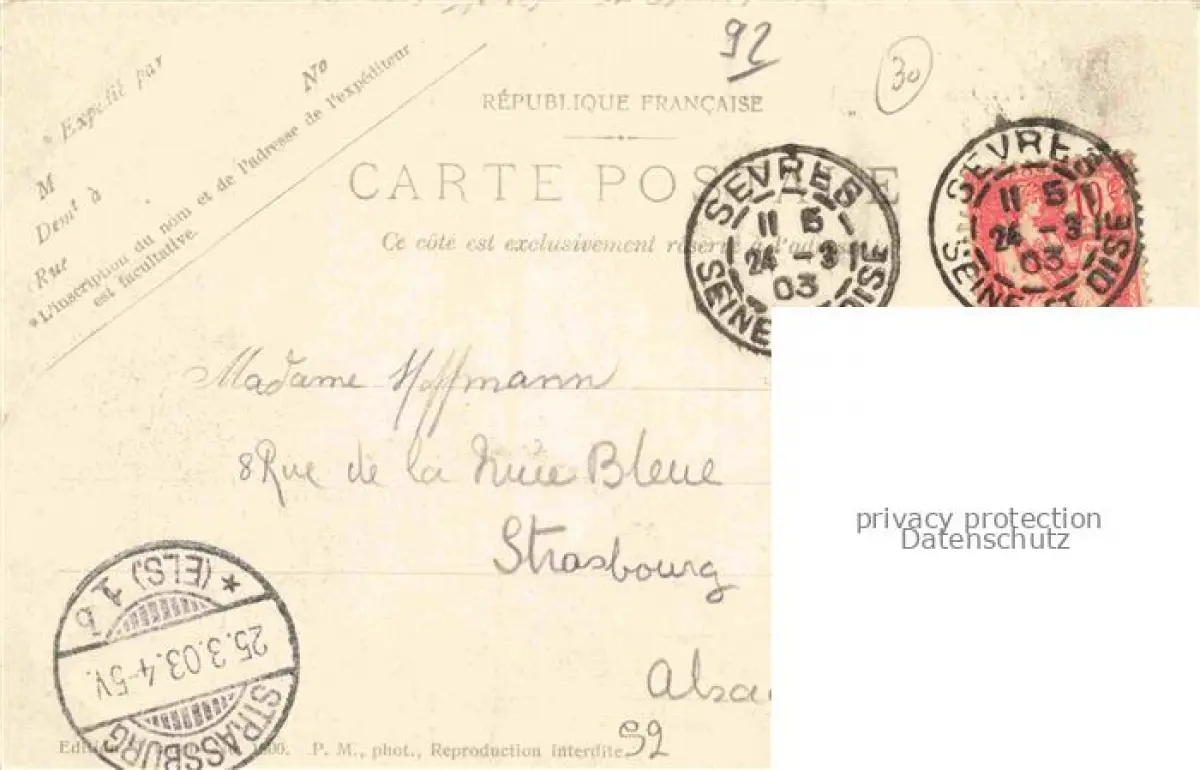 92
30
RÉPUBLIQUE FRANÇAISE
CARTE POS
Ce côté est exclusivement réservé à l'adresse
* Expédié par
M
Demt à
Rue
No
*L'inscription du nom et de l'adresse de l'expéditeur
est facultative.
SEVRES
11 5
24 - 3
03
SEINE OISE
SEVRES
11 5
24 - 3
03
SEINE ET OISE
Madame Hoffmann
8 Rue de la Nuée Bleue
Strasbourg
Alsa
52
privacy protection
Datenschutz
STRASSBURG
25.3.03.4-5V.
* (ELS) 1 b
P. M., phot., Reproduction interdite